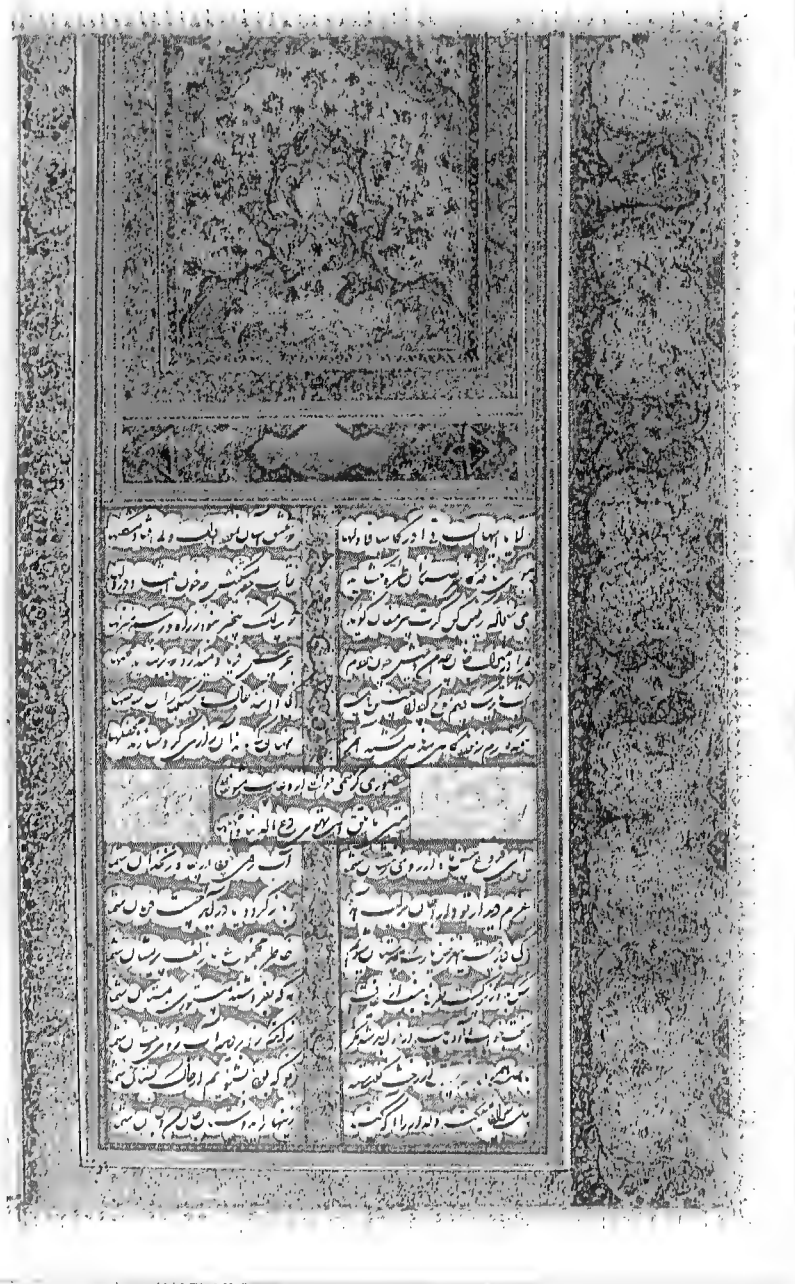 الا یا ایها الساقی ادر کاسا و ناولها که عشق آسان نمود اول ولی افتاد مشکلها
ببوی نافه کاخر صبا زان طره بگشاید ز تاب جعد مشکینش چه خون افتاد در دلها
بمی سجاده رنگین کن گرت پیر مغان گوید که سالک بیخبر نبود ز راه و رسم منزلها
مرا در منزل جانان چه امن عیش چون هردم جرس فریاد میدارد که بربندید محملها
شب تاریک و بیم موج و گردابی چنین هایل کجا دانند حال ما سبکباران ساحلها
همه کارم ز خودکامی به بدنامی کشید آخر نهان کی ماند آن رازی کزو سازند محفلها
حضوری گر همی خواهی ازو غایب مشو حافظ
متی ما تلق من تهوی دع الدنیا و اهملها
ای فروغ حسن ماه از روی رخشان شما آب روی خوبی از چاه زنخدان شما
عزم دیدار تو دارد جان بر لب آمده باز گردد یا برآید چیست فرمان شما
کی دهد دست این غرض یارب که همدستان شوند خاطر مجموع ما زلف پریشان شما
کس بدور نرگست طرفی نبست از عافیت به که نفروشند مستوری بمستان شما
بخت خواب آلود ما بیدار خواهد شد مگر زانکه زد بر دیده آب روی رخشان شما
با صبا همراه بفرست از رخت گلدسته بو که بوی بشنویم از خاک بستان شما
دل خرابی میکند دلدار را آگه کنید زینهار ای دوستان جان من و جان شما